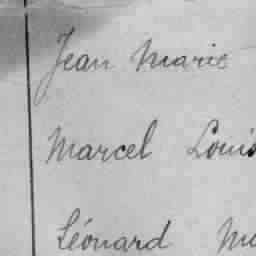 Jean Marie
Marcel Louis
Léonard